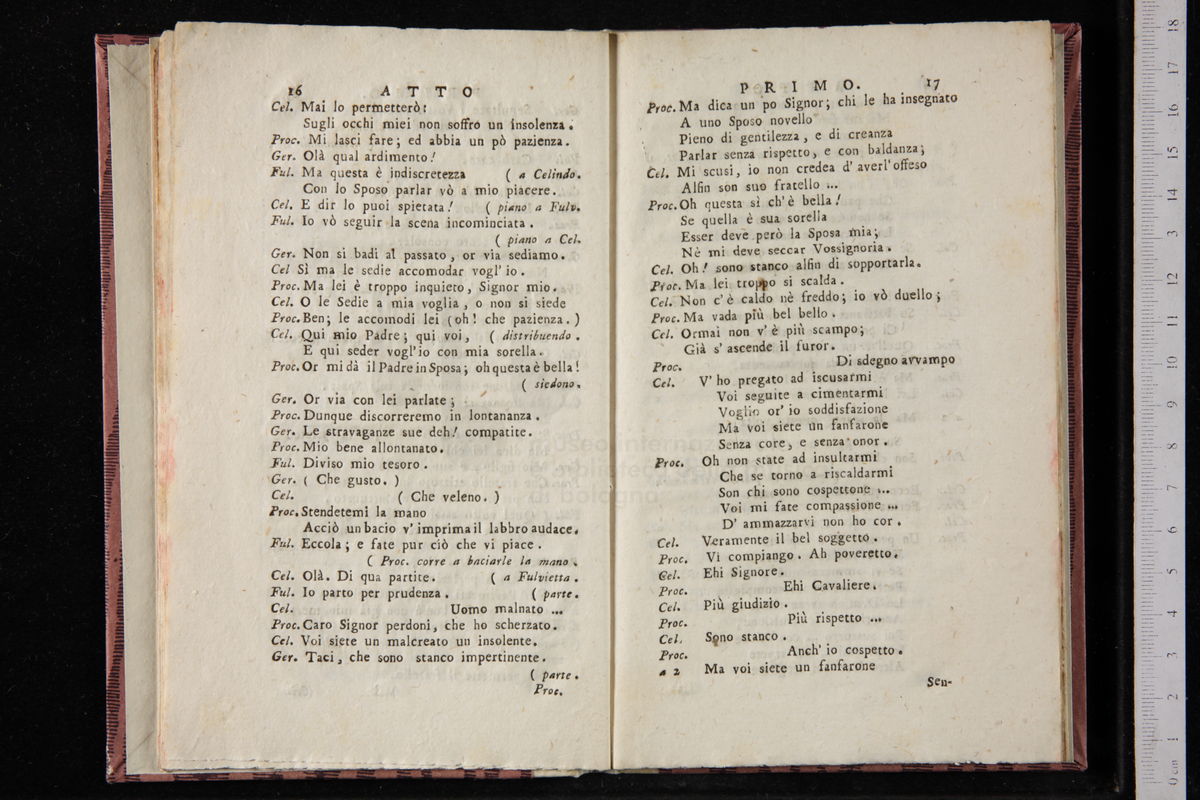 16 ATTO
Cel. Mai lo permetterò:
Sugli occhi miei non soffro un insolenza.
Proc. Mi lasci fare; ed abbia un pò pazienza.
Ger. Olà qual ardimento!
Ful. Ma questa è indiscretezza ( a Celindo.
Con lo Sposo parlar vò a mio piacere.
Cel. E dir lo puoi spietata! ( piano a Fulv.
Ful. Io vò seguir la scena incominciata.
( piano a Cel.
Ger. Non si badi al passato, or via sediamo.
Cel Sì ma le sedie accomodar vogl' io.
Proc. Ma lei è troppo inquieto, Signor mio.
Cel. O le Sedie a mia voglia, o non si siede
Proc. Ben; le accomodi lei (oh! che pazienza.)
Cel. Qui mio Padre; qui voi, ( distribuendo.
E qui seder vogl'io con mia sorella.
Proc. Or mi dà il Padre in Sposa; oh questa è bella!
( siedono.
Ger. Or via con lei parlate;
Proc. Dunque discorreremo in lontananza.
Ger. Le stravaganze sue deh! compatite.
Proc. Mio bene allontanato.
Ful. Diviso mio tesoro.
Ger. ( Che gusto. )
Cel. ( Che veleno. )
Proc. Stendetemi la mano
Acciò un bacio v' imprima il labbro audace.
Ful. Eccola; e fate pur ciò che vi piace.
( Proc. corre a baciarle la mano.
Cel. Olà. Di qua partite. ( a Fulvietta.
Ful. Io parto per prudenza. ( parte.
Cel. Uomo malnato ...
Proc. Caro Signor perdoni, che ho scherzato.
Cel. Voi siete un malcreato un insolente.
Ger. Taci, che sono stanco impertinente.
( parte.
Proc.
PRIMO. 17
Proc. Ma dica un po Signor; chi le ha insegnato
A uno Sposo novello
Pieno di gentilezza, e di creanza
Parlar senza rispetto, e con baldanza;
Cel. Mi scusi, io non credea d' averl'offeso
Alfin son suo fratello ...
Proc. Oh questa sì ch'è bella!
Se quella è sua sorella
Esser deve però la Sposa mia;
Nè mi deve seccar Vossignoria.
Cel. Oh! sono stanco alfin di sopportarla.
Proc. Ma lei troppo si scalda.
Cel. Non c'è caldo nè freddo; io vò duello;
Proc. Ma vada più bel bello.
Cel. Ormai non v'è più scampo;
Già s' ascende il furor.
Proc. Di sdegno avvampo
Cel. V' ho pregato ad iscusarmi
Voi seguite a cimentarmi
Voglio or' io soddisfazione
Ma voi siete un fanfarone
Senza core, e senza onor.
Proc. Oh non state ad insultarmi
Che se torno a riscaldarmi
Son chi sono cospettone ...
Voi mi fate compassione ...
D' ammazzarvi non ho cor.
Cel. Veramente il bel soggetto.
Proc. Vi compiango. Ah poveretto.
Cel. Ehi Signore.
Proc. Ehi Cavaliere.
Cel. Più giudizio.
Proc. Più rispetto ...
Cel. Sono stanco.
Proc. Anch' io cospetto.
a 2 Ma voi siete un fanfarone
Sen-
0 cm 1 2 3 4 5 6 7 8 9 10 11 12 13 14 15 16 17 18